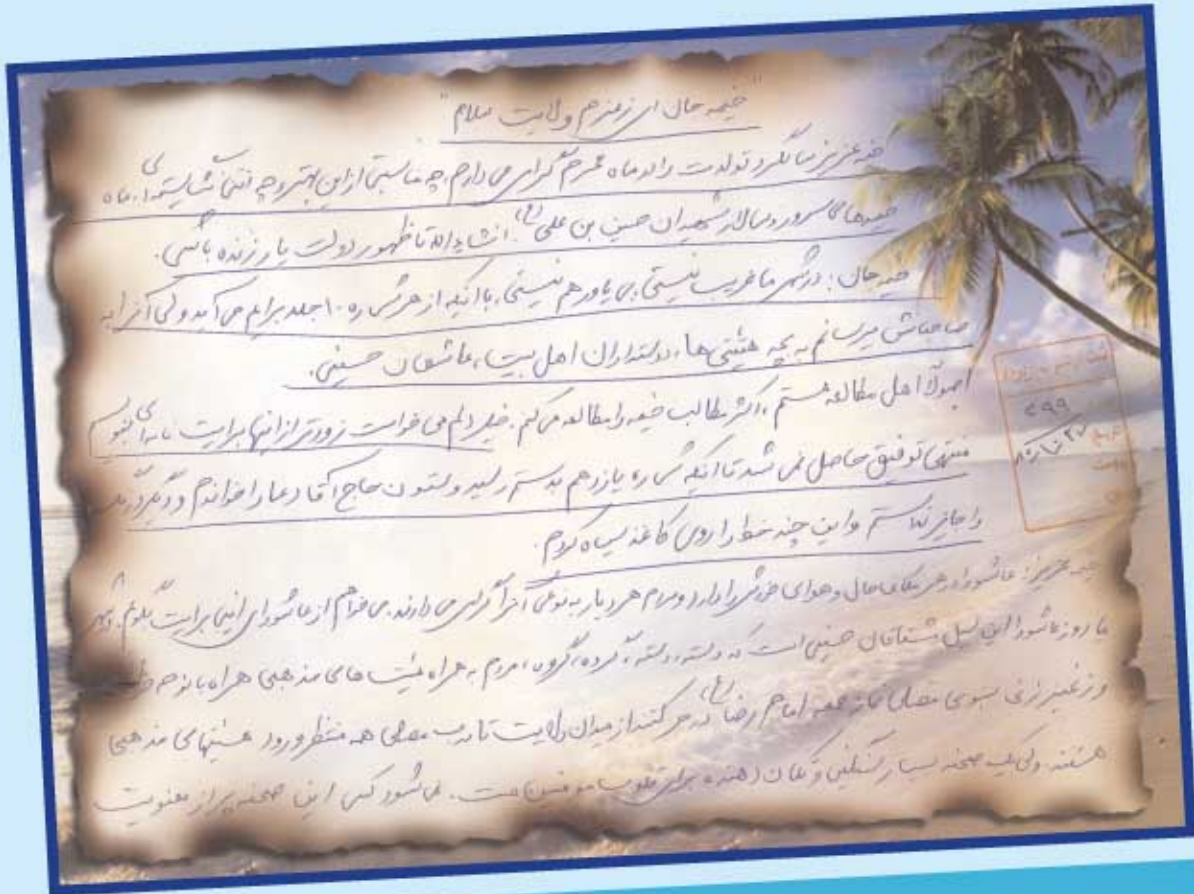 "خیمه جان ای زمزم ولایت سلام"
خیمه عزیز سالگرد تولدت را در ماه محرم گرامی می دارم، چه مناسبتی از این بهتر و چه شایسته ماه
خیمه های سرور و سالار شهیدان حسین بن علی (ع). انشاءالله تا ظهور دولت یار زنده باشی.
خیمه جان: در شهر ما غریب نیستی، بی یاور هم نیستی، با آنکه از هر شماره ۱۰ جلد برایم می آید ولی آنرا به
صاحبانش میرسانم به بچه هیئتی ها، دوستداران اهل بیت، عاشقان حسینی.
اصولاً اهل مطالعه هستم، اکثر مطالب خیمه را مطالعه می کنم. خیلی دلم می خواست زودتر از اینها برایت نامه ای بنویسم
منتهی توفیق حاصل نمی شد تا آنکه شماره یازدهم بدستم رسید و ستون حاج آقا دعا را خواندم و دیگر درنگ
را جایز ندانستم و این چند خط را روی کاغذ سیاه کردم.
خیمه عزیز: عاشورا در هر جای حال و هوای خودش را دارد و مردم هر دیار به نوعی آنرا گرامی می دارند. می خواهم از عاشورای اینجا برایت بگویم. در شهر
ما روز عاشورا این سیل مشتاقان حسینی است که دسته، دسته، گروه، گروه، مردم به همراه هیئت های مذهبی همراه با نوحه
و زنجیر زنی بسوی مصلای نماز جمعه امام رضا (ع) در حرکتند از میدان ولایت تا درب مصلی همه منتظر ورود هیئتهای مذهبی
هستند ولی یک صحنه بسیار سنگین و تکان دهنده برای قلوب است. می شود کسی این صحنه پر از معنویت
۲۹۹